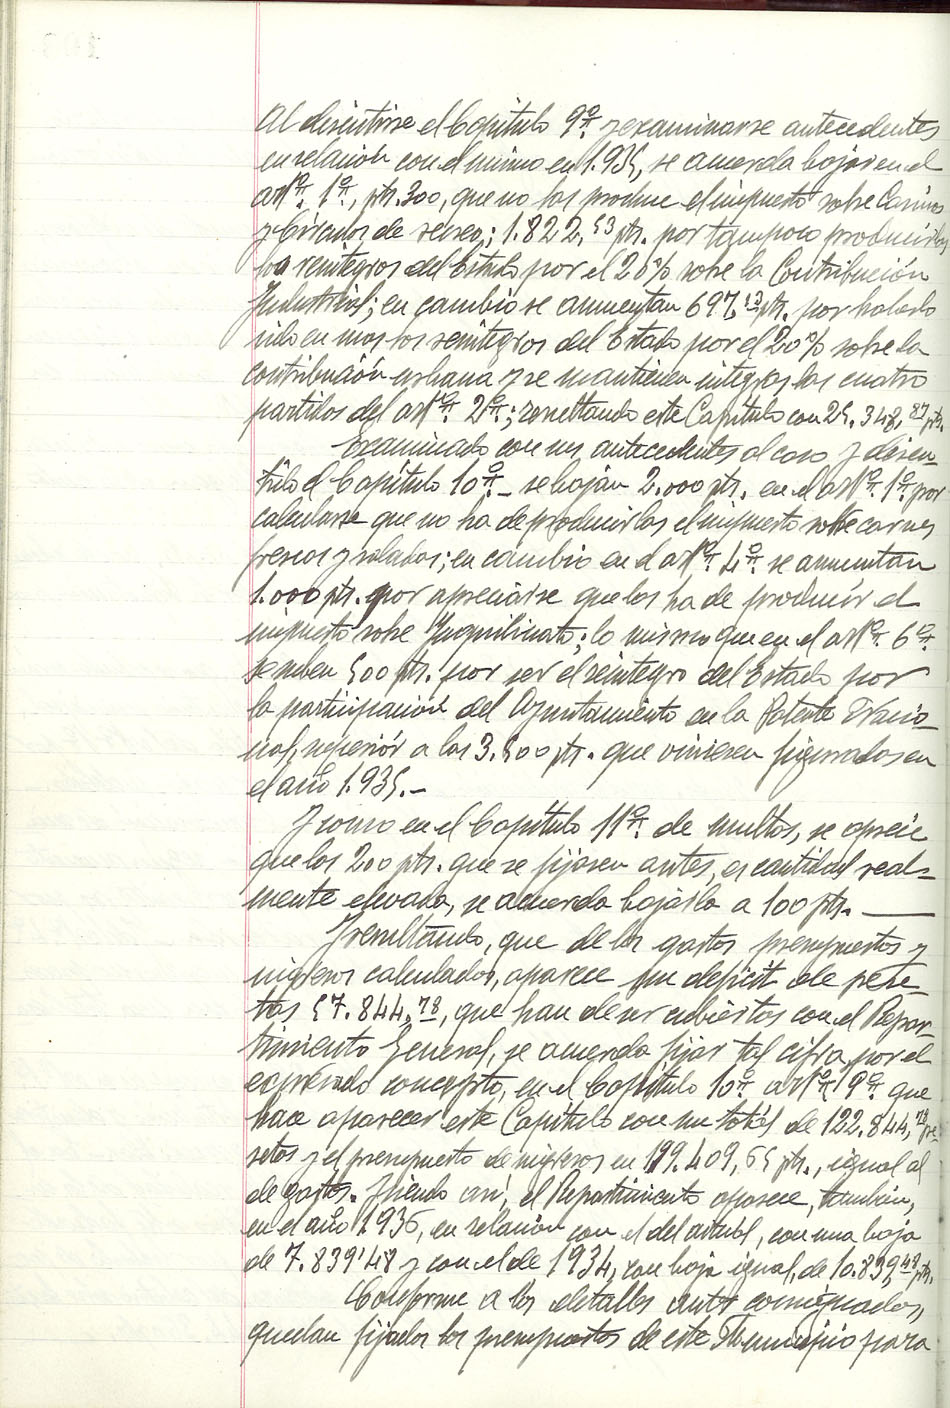 Al discutirse el Capítulo 9º y examinarse antecedentes
en relación con el mismo en 1.935, se acuerda bajar en el
artº. 1º, pts. 300, que no las produce el impuesto sobre Casinos
y Círculos de recreo; 1.822,53 pts. por tampoco producirlas
los reintegros del Estado por el 20% sobre la Contribución
Industrial; en cambio se aumentan 697,13 pts. por haberlo
sido en mas los reintegros del Estado por el 20% sobre la
contribución urbana y se mantienen integros los cuatro
partidos del artº. 2º; resultando este Capítulo con 25.348,87 pts.
Examinado con sus antecedentes al caso y discu-
tido el Capítulo 10º.- se bajan 2.000 pts. en el artº. 1º. por
calcularse que no ha de producirlas el impuesto sobre carnes
frescas y saladas; en cambio en el artº. 4º. se aumentan
1.000 pts. por apreciarse que las ha de producir el
impuesto sobre Inquilinato; lo mismo que en el artº. 6º.
se suben 500 pts. por ser el reintegro del Estado por
la participación del Ayuntamiento en la Patente Nacio-
nal, superiór a las 3.500 pts. que vinieren figurados en
el año 1.935.-
Y como en el Capítulo 11º. de multas, se aprecie
que las 200 pts. que se fijasen antes, es cantidad real-
mente elevada, se acuerda bajarla a 100 pts. ———
Y resultando, que de los gastos presupuestos y
ingresos calculados, aparece un deficit de pese-
tas 57.844,78, que han de ser cubiertos con el Repar-
timiento General, se acuerda fijar tal cifra, por el
expresado concepto, en el Capítulo 10º. artº. 9º. que
hace aparecer este Capítulo con un total de 122.844,78 pe-
setas y el presupuesto de ingresos en 199.409,65 pts., igual al
de gastos. Siendo así, el Repartimiento aparece, tambien,
en el año 1936, en relación con el del actual, con una baja
de 7.839'48 y con el de 1934, con baja igual, de 10.839,48 pts.
Conforme a los detalles antes consignados,
quedan fijados los presupuestos de este Municipio para